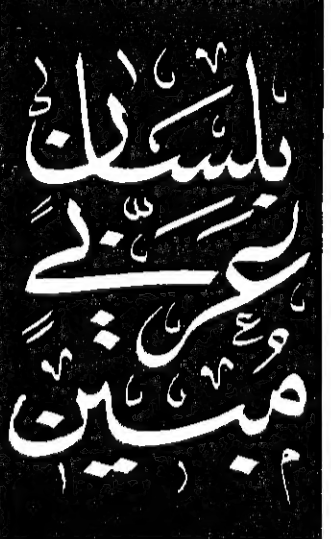 بلسان
عربيٍّ
مُبينٍ